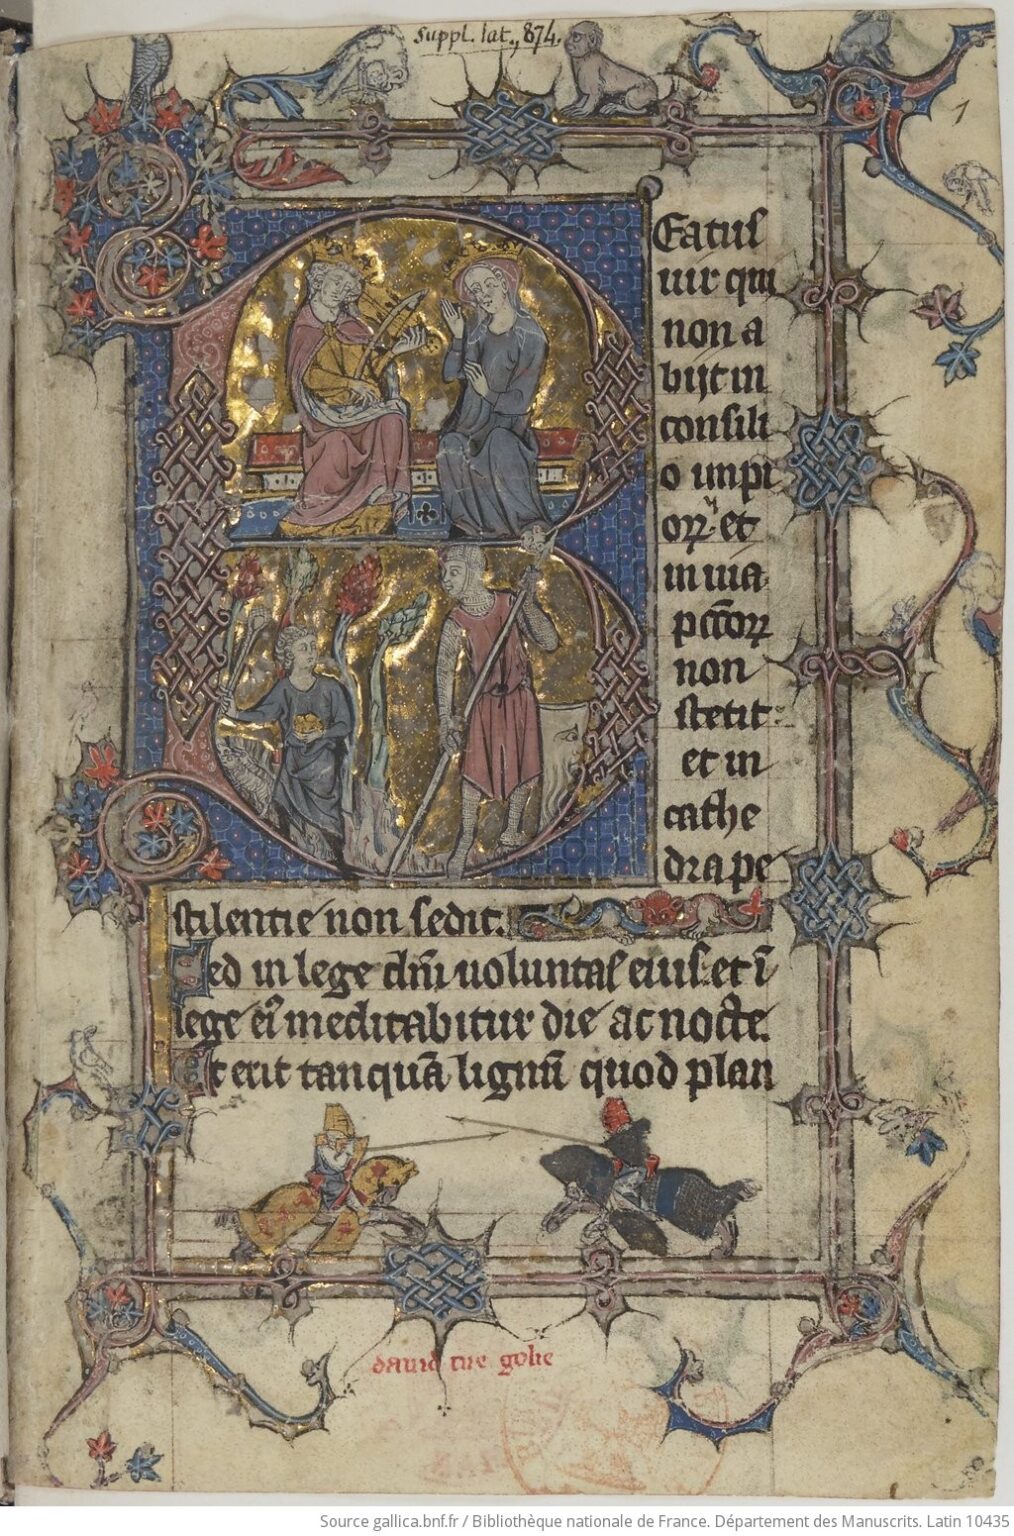 Suppl. lat., 874.
1
Eatus
uir qui
non a
bijt in
consili
o impi
oꝝ et
in uia
pcc̄oꝝ
non
stetit
et in
cathe
dra pe
stilentie non sedit.
Sed in lege dn̄i uoluntas eius: et ī
lege ei᷒ meditabitur die ac nocte.
Et erit tanquā lignū quod plan
dauid tue golie
Source gallica.bnf.fr / Bibliothèque nationale de France. Département des Manuscrits. Latin 10435